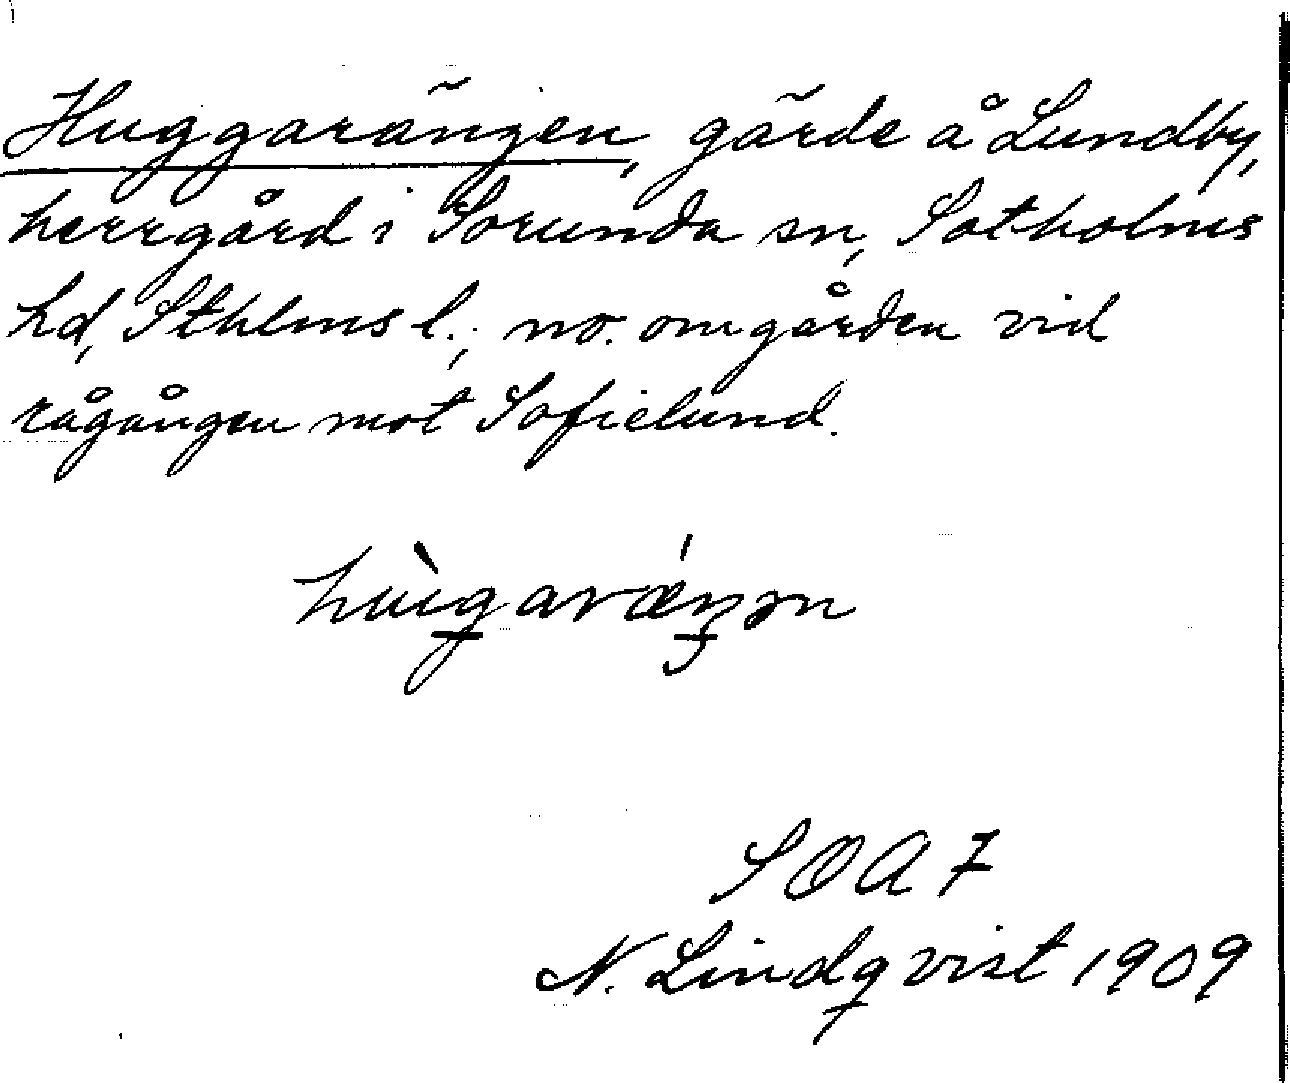 Huggarängen, gärde å Lundby,
herrgård i Sorunda sn, Sotholms
hd, Sthlms l.; no. om gården vid
rågången mot Sofielund.
SOA 7
N. Lindqvist 1909